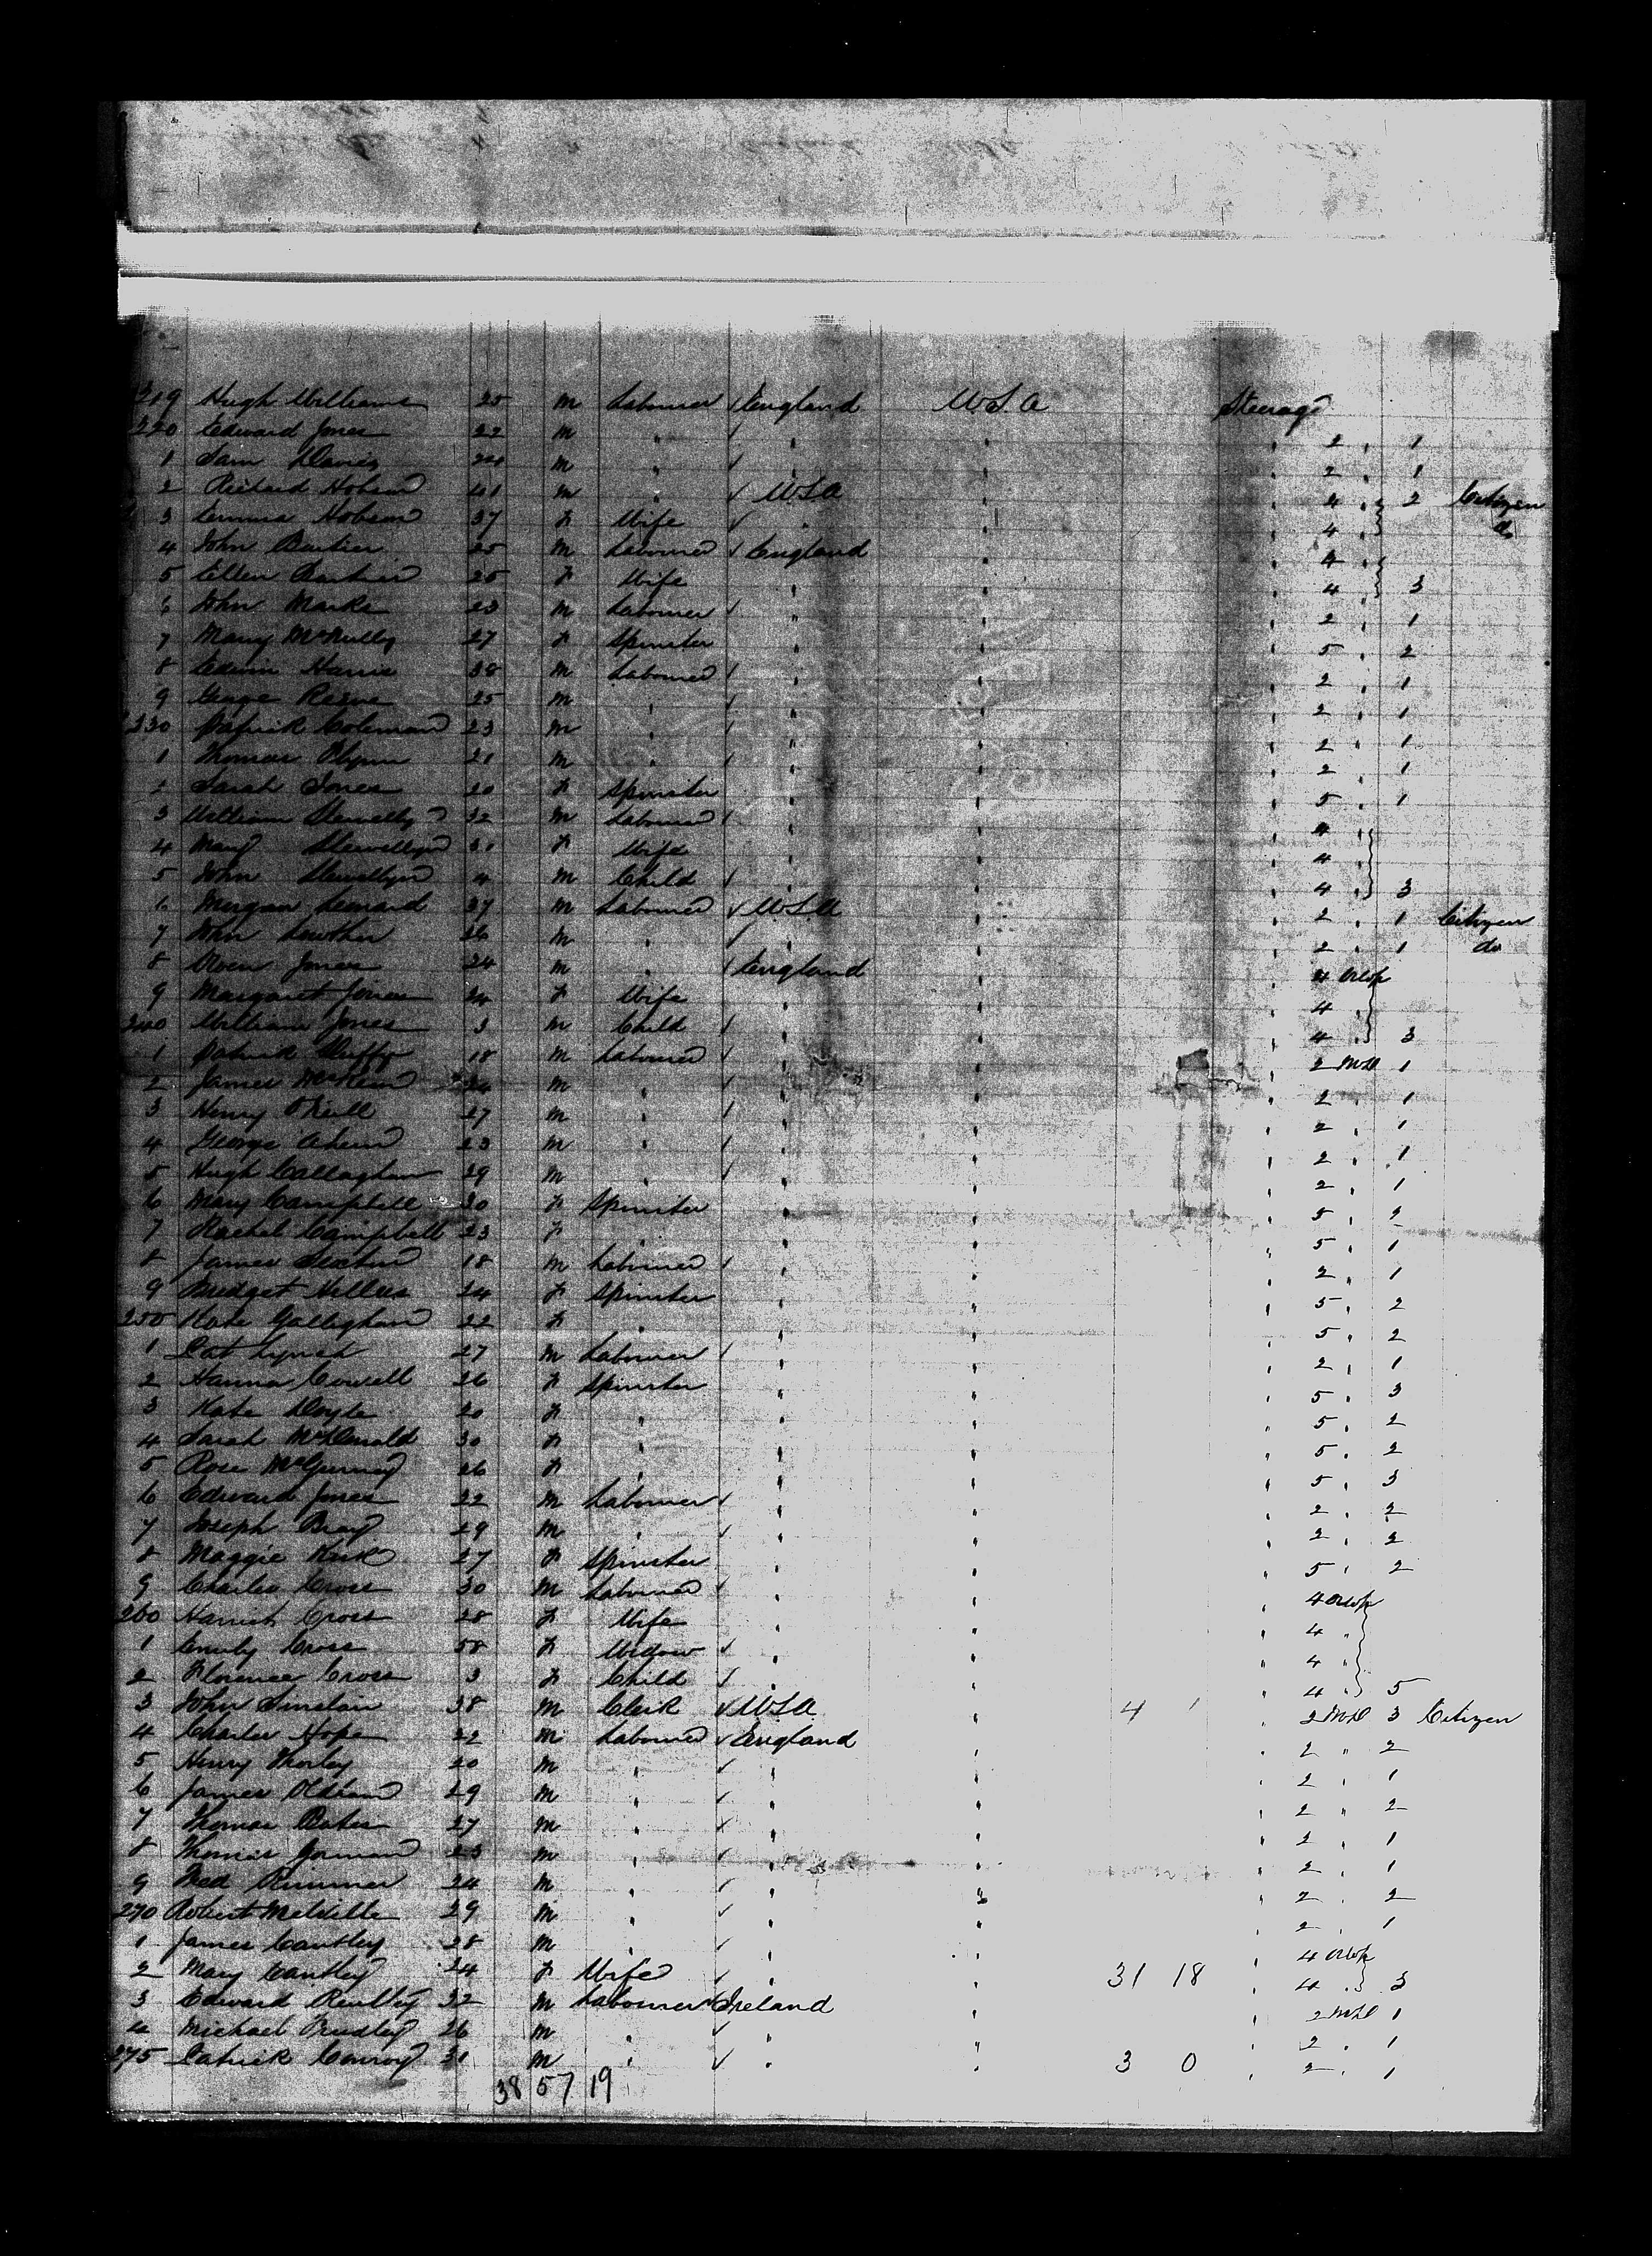 219 Hugh Williams 25 m Labourer England USA Steerage
220 Edward Jones 22 m " " " " 2 " 1
1 Sam Davies 24 m " " " " 2 " 1
2 Richard Hobson 41 m " USA " " 4 " 2 Citizen
3 Emma Hobson 37 f Wife " " " 4 " do
4 John 25 m Labourer England " " 4 "
5 Ellen 25 f Wife " " " 4 " 3
6 John Marke 23 m Labourer " " " 2 " 1
7 Mary McNulty 27 f Spinster " " " 5 " 2
8 Edwin Harris 38 m Labourer " " " 2 " 1
9 George Reeve 25 m " " " " 2 " 1
230 Patrick Coleman 23 m " " " " 2 " 1
1 Thomas Flynn 21 m " " " " 2 " 1
2 Sarah Jones 20 f Spinster " " " 5 " 1
3 William Llewellyn 32 m Labourer " " " 4 "
4 Mary Llewellyn 31 f Wife " " " 4 "
5 John Llewellyn 4 m Child " " " 4 " 3
6 Morgan Lenard 37 m Labourer USA " " 2 " 1 Citizen
7 John Lowther 26 m " " " " 2 " 1 do
8 Owen Jones 24 m " England " " 4 Orlop
9 Margaret Jones 24 f Wife " " " 4 "
240 William Jones 3 m Child " " " 4 " 3
1 Patrick Duffy 18 m Labourer " " " 2 MD 1
2 James 24 m " " " " 2 " 1
3 Henry O'Neill 27 m " " " " 2 " 1
4 George 23 m " " " " 2 " 1
5 Hugh Callaghan 29 m " " " " 2 " 1
6 Mary Campbell 20 f Spinster " " " 5 " 2
7 Rachel Campbell 23 f " " " " 5 " 1
8 James Sexton 18 m Labourer " " " 2 " 1
9 Bridget 24 f Spinster " " " 5 " 2
250 Kate Gallaghan 22 f " " " " 5 " 2
1 Pat Lynch 27 m Labourer " " " 2 " 1
2 Hanna Cowell 26 f Spinster " " " 5 " 3
3 Kate Doyle 20 f " " " " 5 " 2
4 Sarah McDonald 30 f " " " " 5 " 2
5 Rose 26 f " " " " 5 " 3
6 Edward Jones 22 m Labourer " " " 2 " 2
7 Joseph Bray 29 m " " " " 2 " 2
8 Maggie Kirk 27 f Spinster " " " 5 " 2
9 Charles Cross 30 m Labourer " " " 4 Orlop
260 Harriet Cross 28 f Wife " " " 4 "
1 Emily Cross 58 f Widow " " " 4 "
2 Florence Cross 3 f Child " " " 4 " 5
3 John Sinclair 38 m Clerk USA " 4 1 " 2 MD 3 Citizen
4 Charles Hope 22 m Labourer England " " 2 " 2
5 Henry Thorley 20 m " " " " 2 " 1
6 James Oldham 29 m " " " " 2 " 2
7 Thomas Bates 27 m " " " " 2 " 1
8 Thomas Gorman 23 m " " " " 2 " 1
9 Fred Rimmer 24 m " " " " 2 " 2
270 Robert Melville 29 m " " " " 2 " 1
1 James Cantley 28 m " " " " 4 Orlop
2 Mary Cantley 24 f Wife " " 31 18 " 4 " 3
3 Edward 32 m Labourer Ireland " " 2 MD 1
4 Michael 26 m " " " " 2 " 1
275 Patrick Conroy 31 m " " " 3 0 " 2 " 1
38 57 19